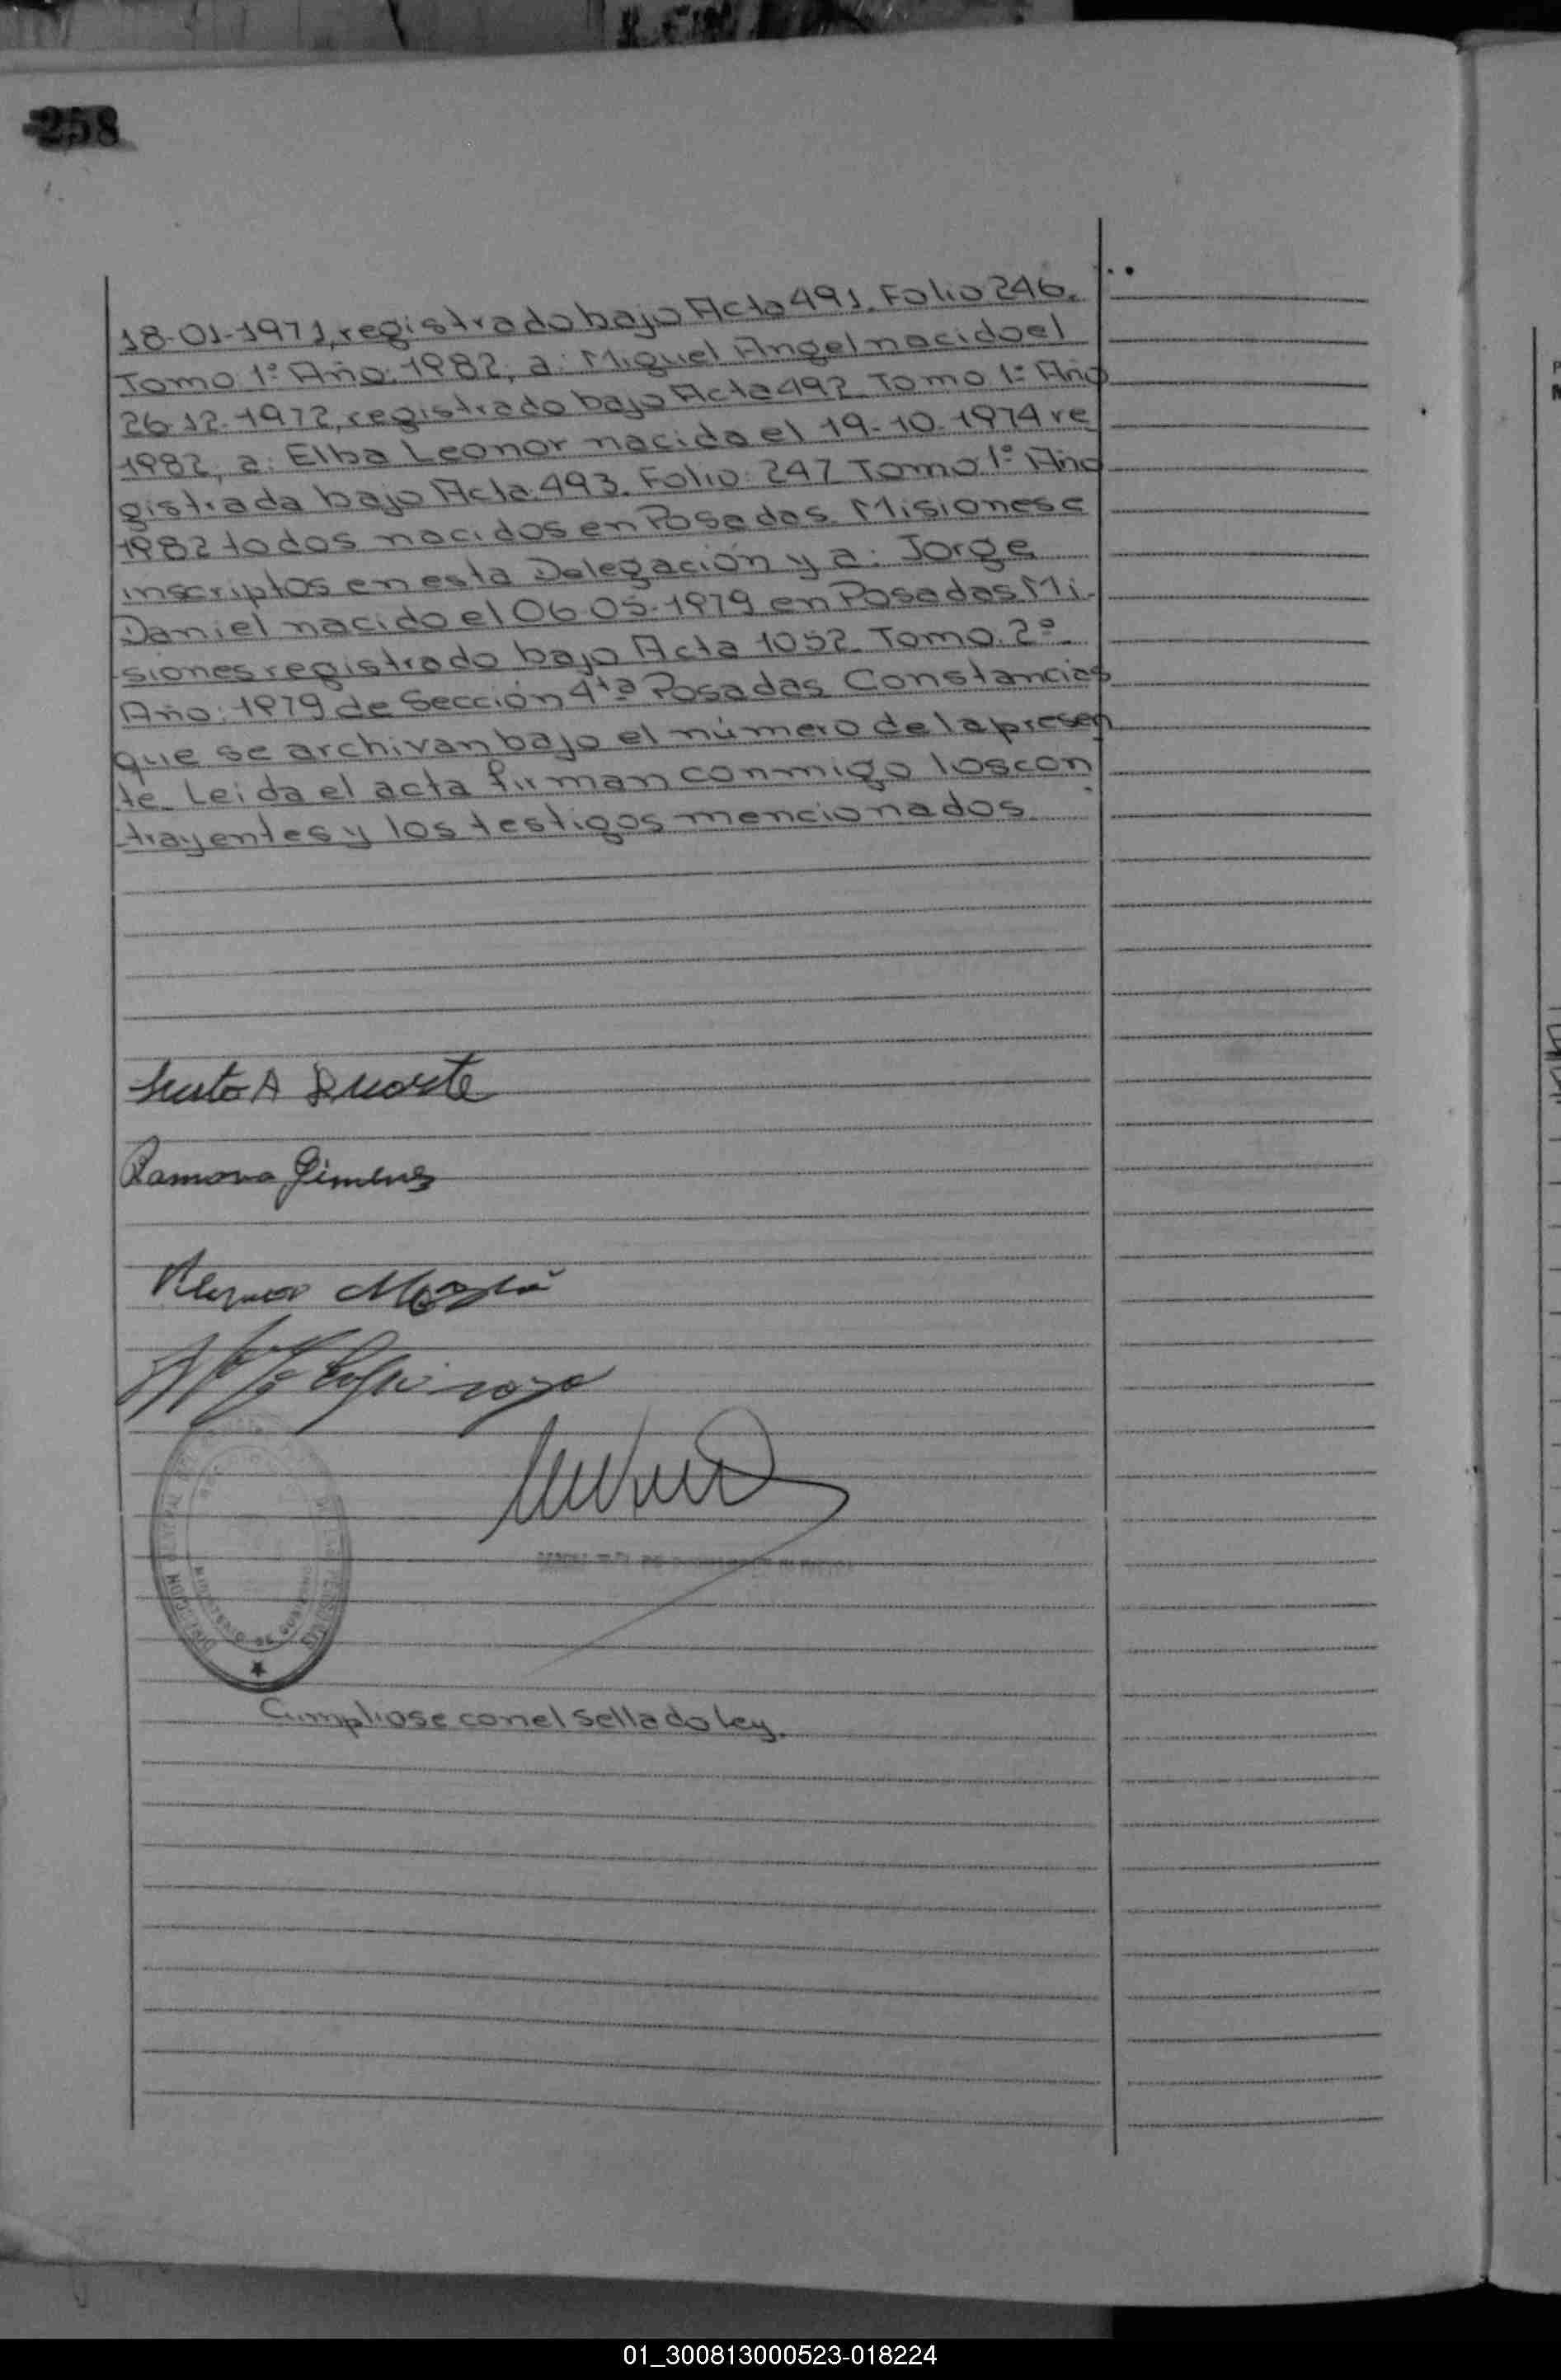 258
18-01-1971, registrado bajo Acta 491. Folio 246.
Tomo 1º Año: 1982, a: Miguel Angel nacido el
26-12-1972, registrado bajo Acta 492. Tomo 1º Año
1982, a: Elba Leonor nacida el 19-10-1974 re
gistrada bajo Acta: 493. Folio: 247 Tomo 1º Año
1982 todos nacidos en Posadas. Misiones e
inscriptos en esta Delegación y a: Jorge
Daniel nacido el 06-05-1979 en Posadas Mi-
siones registrado bajo Acta 1052. Tomo. 2º
Año: 1979 de Sección 4ta Posadas Constancias
que se archivan bajo el número de la presen
te. Leida el acta firman conmigo los con
trayentes y los testigos mencionados.
A Duarte
Ramona Gimenez
DIRECCION GENERAL DEL
DE LAS PERSONAS
MINISTERIO DE GOBIERNO
Cumpliose con el sellado ley.
01_300813000523-018224